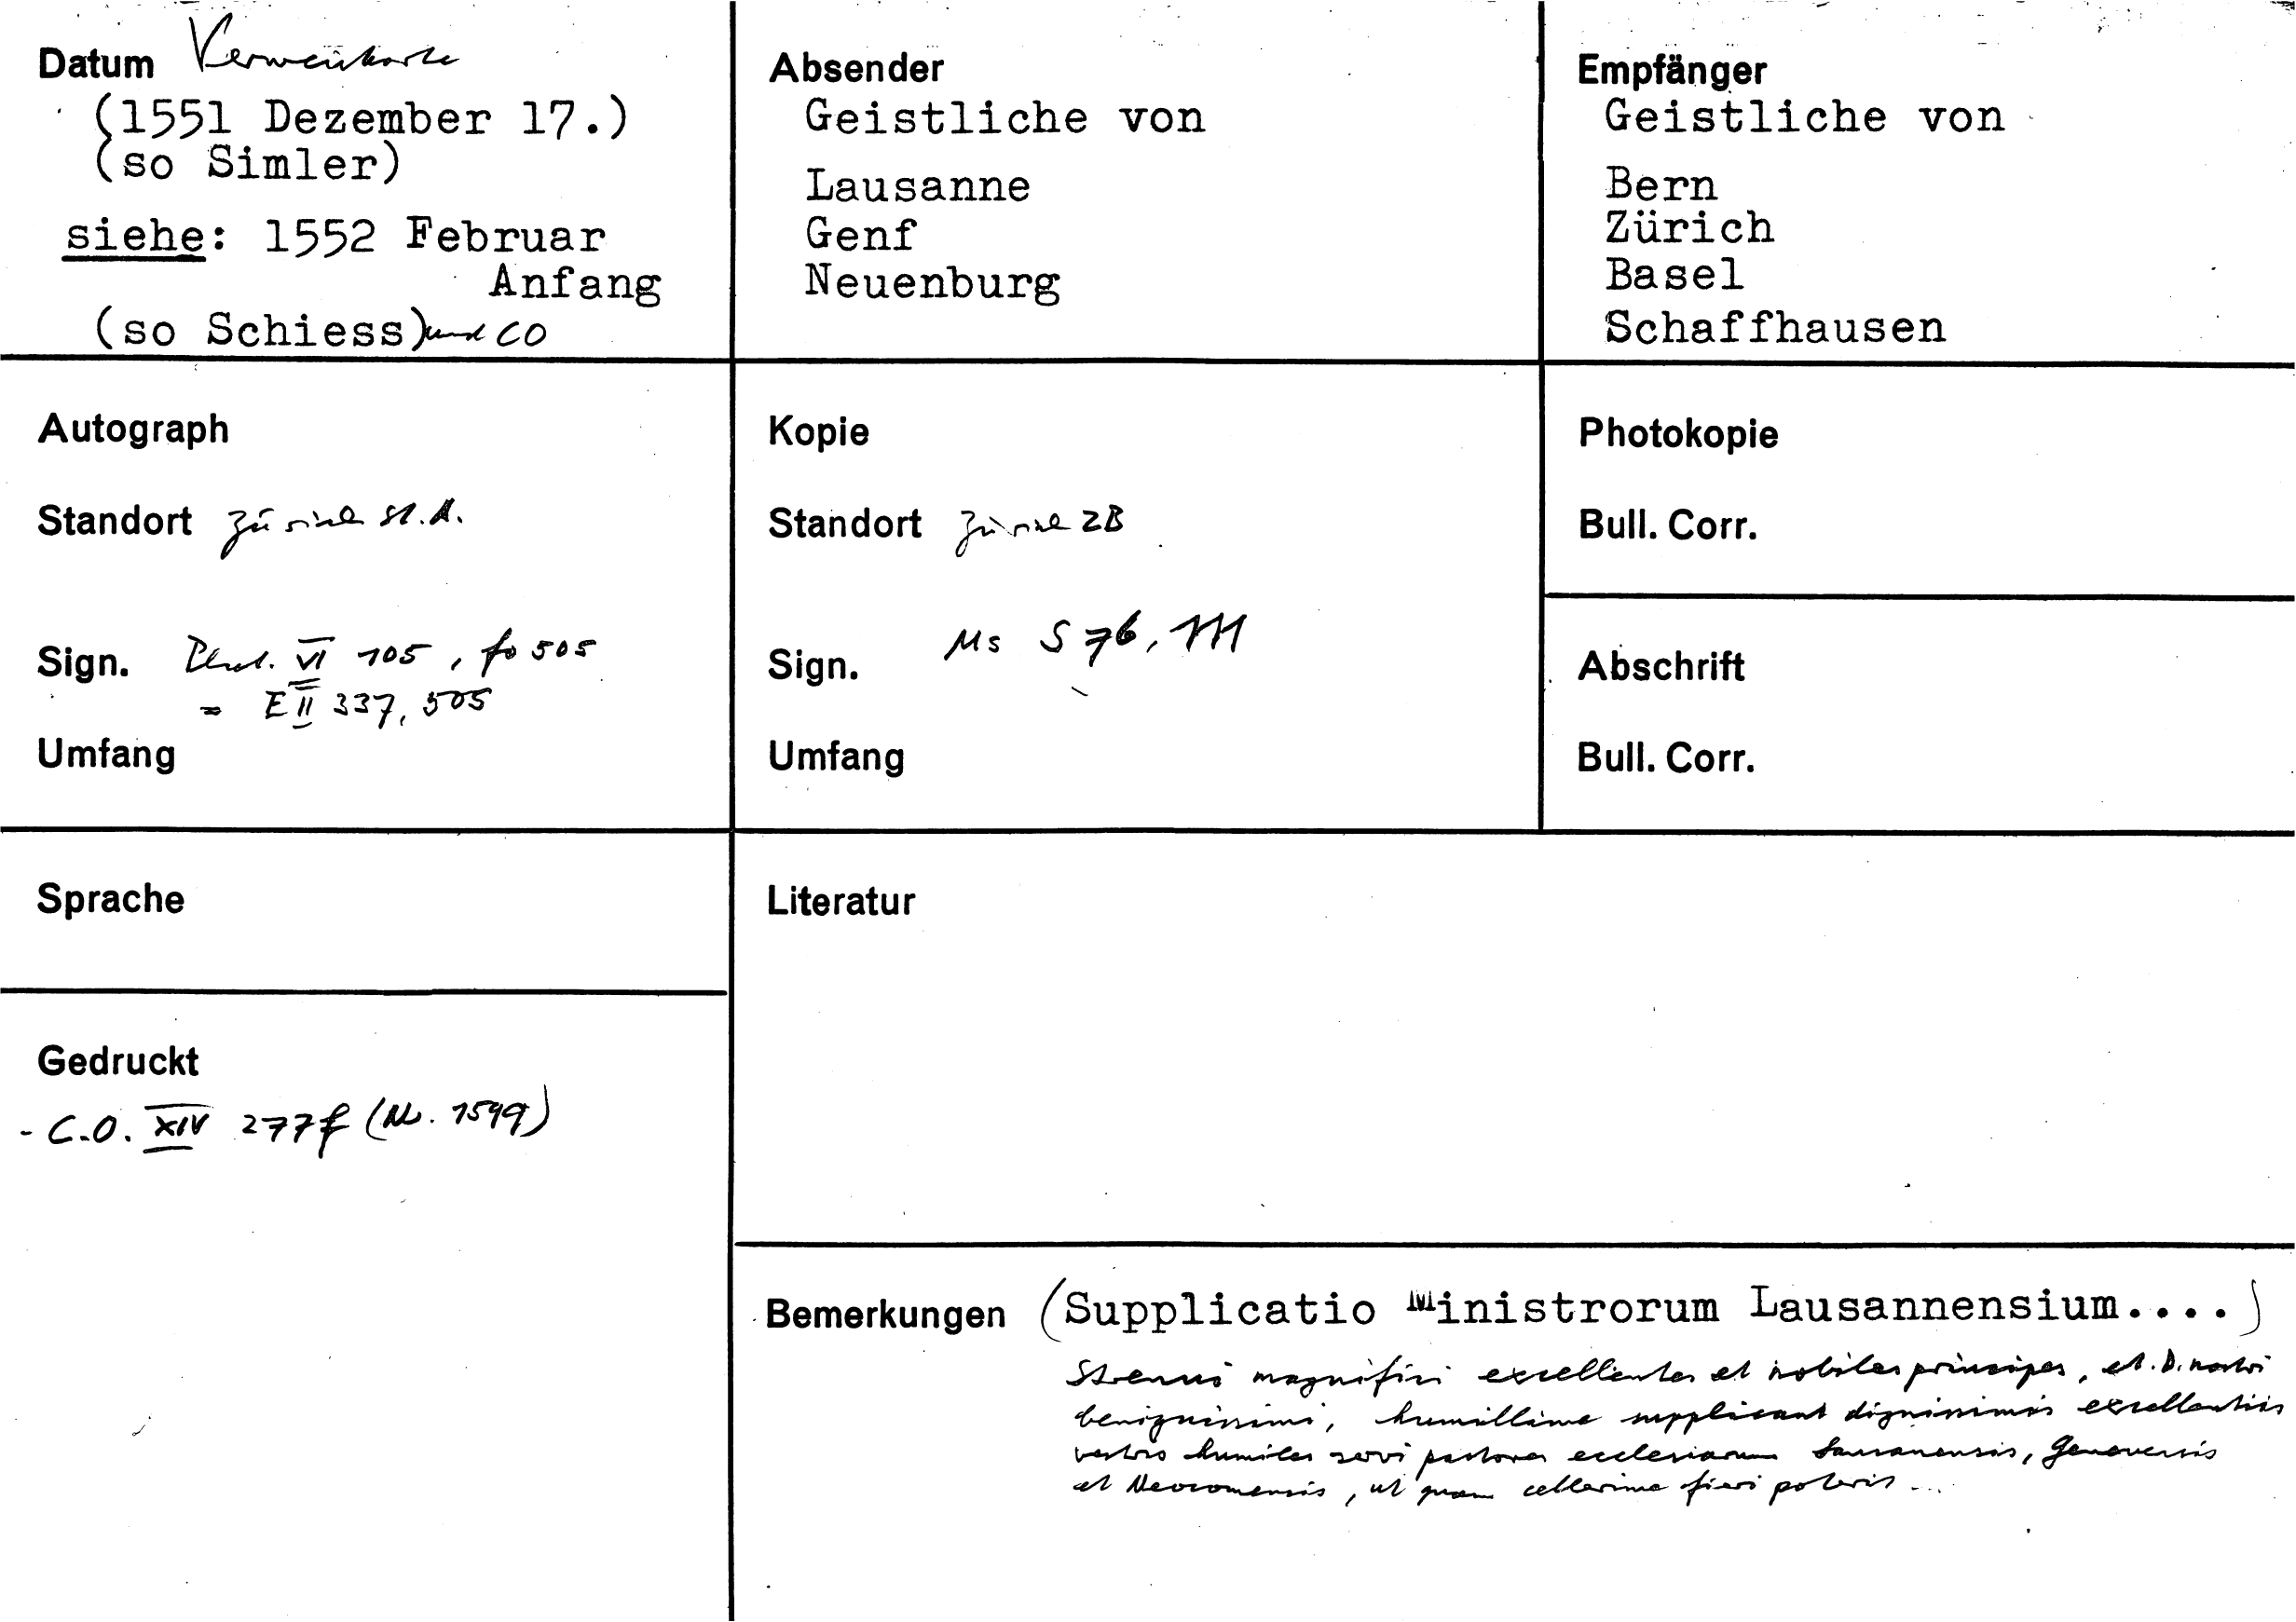 Datum Verweiskarte
(1551 Dezember 17.)
(so Simler)
siehe: 1552 Februar
Anfang
(so Schiess) und CO
Absender
Geistliche von
Lausanne
Genf
Neuenburg
Empfänger
Geistliche von
Bern
Zürich
Basel
Schaffhausen
Autograph
Standort Zürich St.A.
Sign. VI 105, fo 505
= E II 337, 505
Umfang
Kopie
Standort Zürich ZB
Sign. Ms S 76, 111
Umfang
Photokopie
Bull. Corr.
Abschrift
Bull. Corr.
Sprache
Gedruckt
- C.O. XIV 277f (Nr. 1599)
Literatur
Bemerkungen (Supplicatio Ministrorum Lausannensium....)
Strenui magnifici excellentes et nobiles principes, et. D. nostri
benignissimi, humillime supplicant dignissimis excellentiis
vestris humiles servi pastores ecclesiarum Lausanensis, Genevensis
et Neocomensis, ut quam cellerime fieri poterit ...